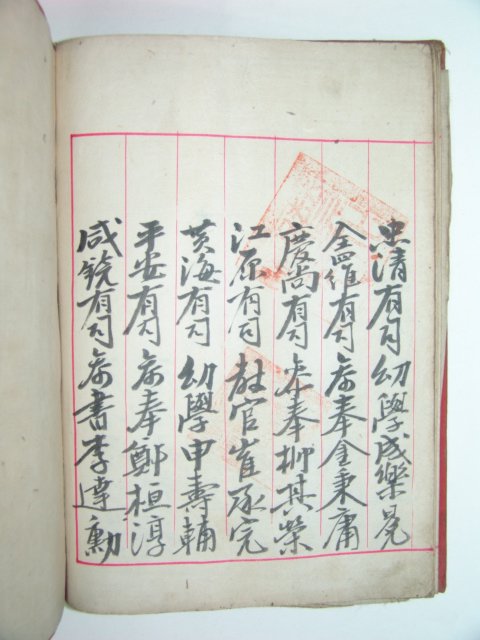 忠淸有司 幼學成樂冕
全羅有司 前參奉金秉庸
慶尙有司 參奉柳其榮
江原有司 敎官崔琢完
黃海有司 幼學申壽輔
平安有司 參奉鄭桓淳
咸鏡有司 前 書李達勳